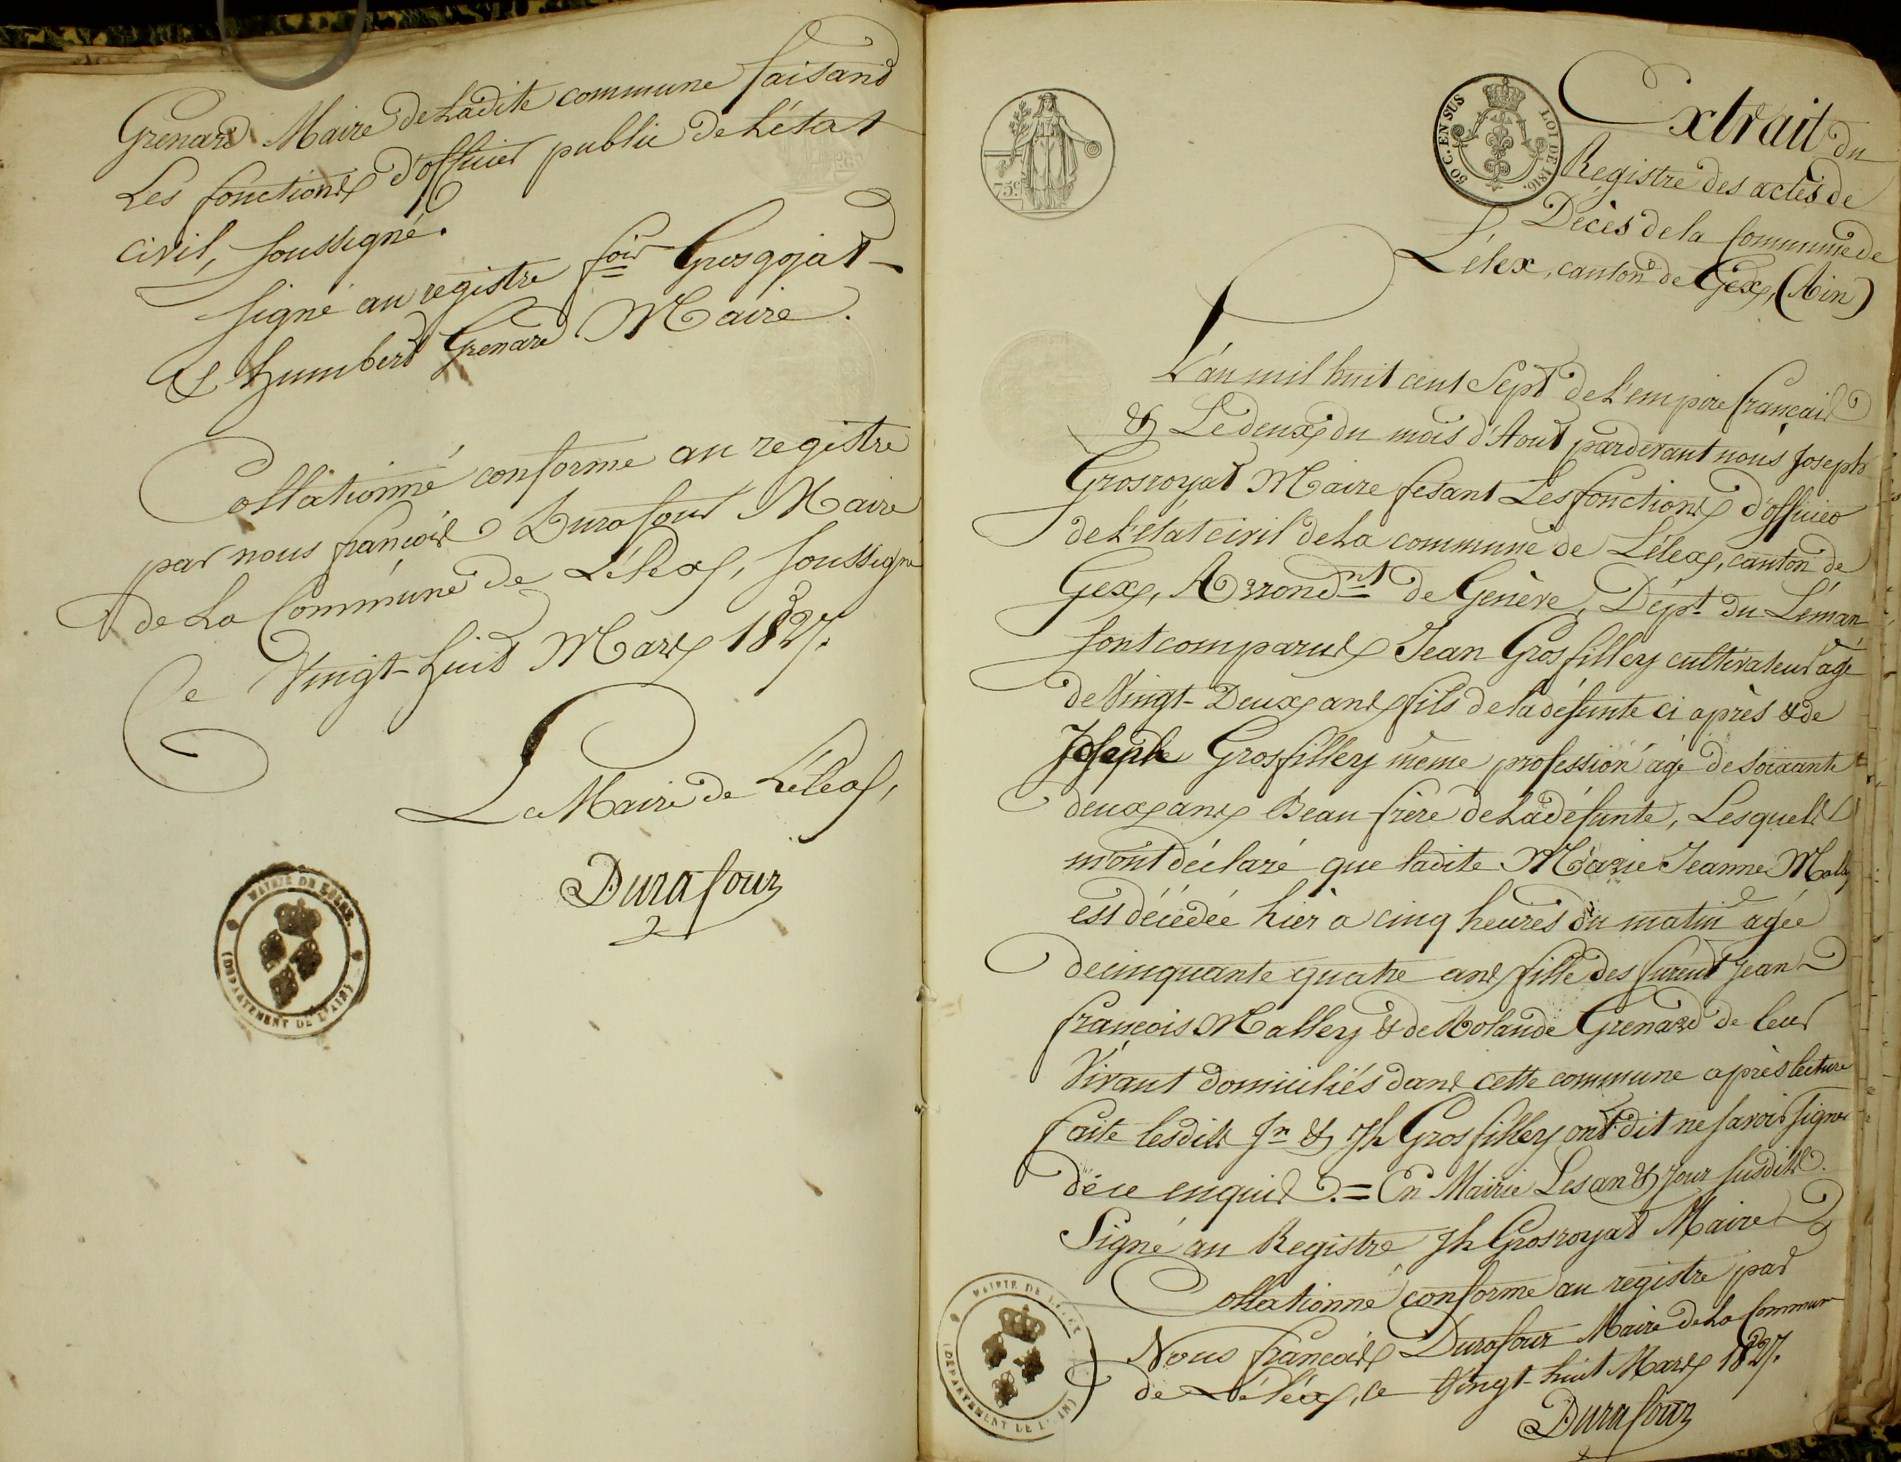 Grenard Maire de Ladite commune faisand
Les fonctions d'officier public de L'état
civil, soussigné.
signé au registre fois Grosgojat
& humbert Grenard Maire.
Collationné conforme au registre
par nous françois Durafour Maire
de La Commune de Lélex, soussigné
Ce Vingt-huit Mars 1827.
Le Maire de Lélex,
Durafour
MAIRIE DE LELEX
(DÉPARTEMENT DE L'AIN)
75c
50 C. EN SUS LOI DE 1816.
Extrait du
Registre des actes de
Décès de la Commune de
Lélex, canton de Gex, (Ain)
L'an mil huit cent Sept de L'empire français
& Le deux du mois d'Aout pardevant nous Joseph
Grosroyat Maire fesant Les fonctions d'officier
de L'état civil de La commune de Lélex, canton de
Gex, Arrondmt de Genève, Dépt. du Léman
sont comparus Jean Grosfilley cultivateur agé
de Vingt-Deux ans fils de la défunte ci après & de
Joseph Grosfilley même profession agé de soixante
deux ans Beau frère de La défunte, Lesquels
m'ont déclaré que ladite Marie Jeanne Malley
est décédée hier a cinq heures du matin agée
de cinquante quatre ans fille des furent Jean
françois Malley & de Rolande Grenard de leur
Vivant domiciliés dans cette commune après lecture
faite lesdits Jn & Jh Grosfilley ont dit ne savoir signer
de ce enquis. = En Mairie Les an & jour susdits.
Signé au Registre Jh Grosroyat Maire
Collationné conforme au registre par
Nous françois Durafour Maire de La Commune
de Lélex, ce Vingt-huit Mars 1827.
Durafour
MAIRIE DE LELEX
(DÉPARTEMENT DE L'AIN)